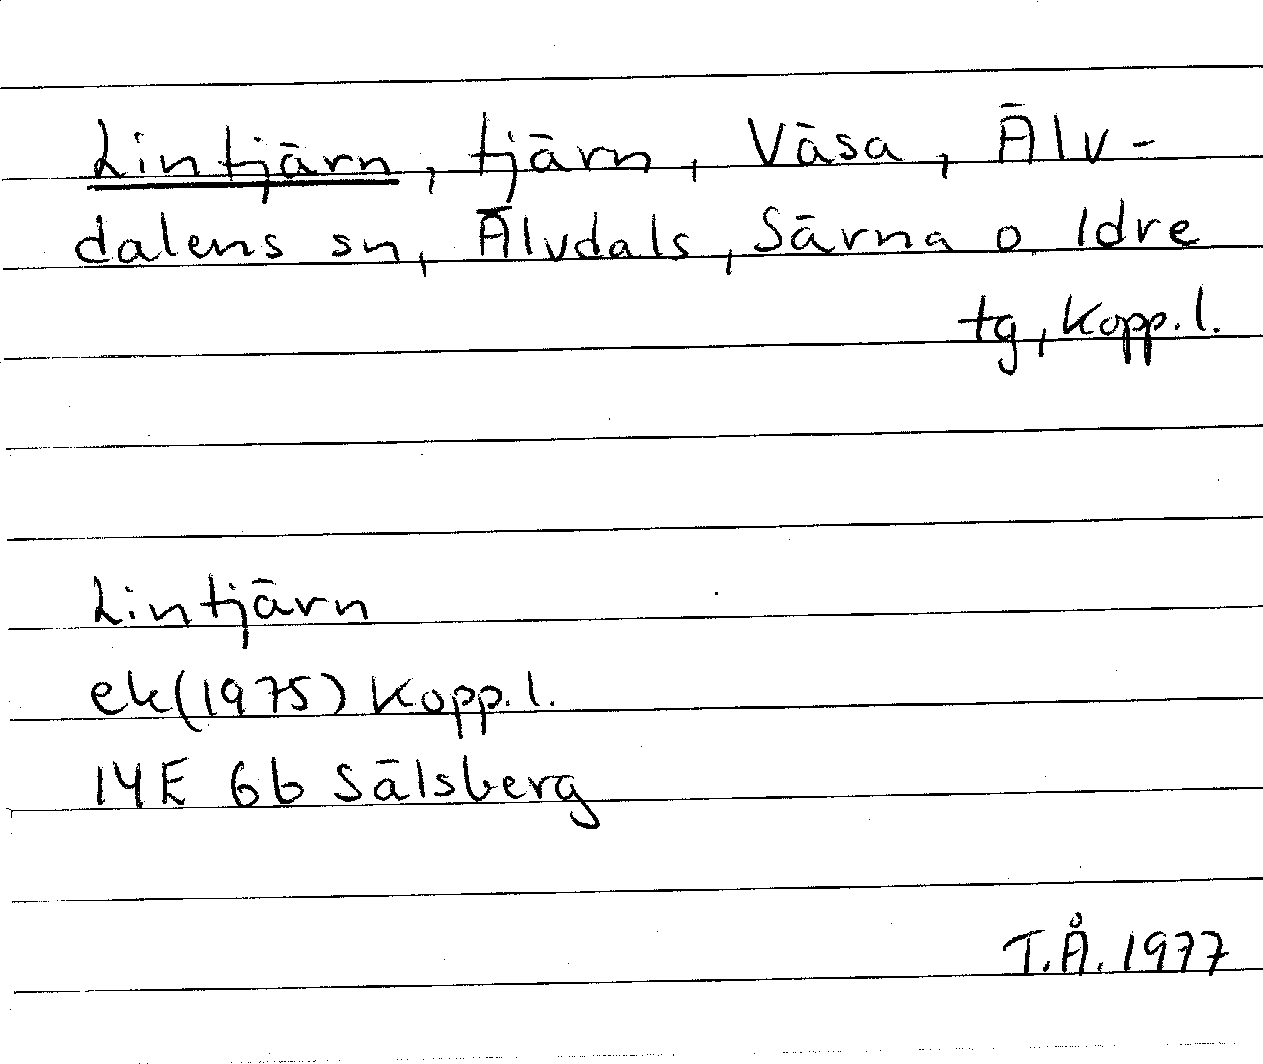 Lintjärn, tjärn, Väsa, Älv-
dalens sn, Älvdals, Särna o Idre
tg, Kopp.l.
Lintjärn
ek(1975) Kopp.l.
14E 6b Sälsberg
T.Å. 1977